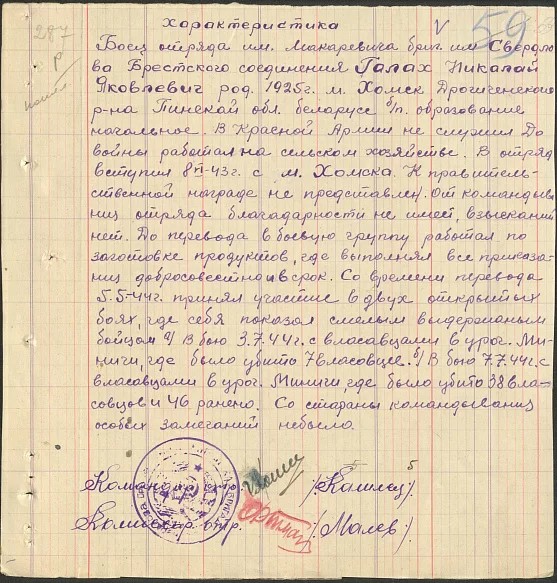 Характеристика
V 59
287
р
Боец отряда им. Макаревича бриг. им Свердло
ва Брестского соединения Галах Николай
Яковлевич род. 1925г. м. Хомск Дрогиченского
р-на Пинской обл. беларус б/п. образование
начальное. В Красной Армии не служил До
войны работал на сельском хозяйстве. В отряд
вступил 8 VI-43г. с м. Хомска. К правитель-
ственной награде не представлен. От командыва
ниц отряда благадарности не имет, взысканий
нет. До перевода в боевую группу работал по
заготовке продуктов, где выполнял все приказа-
ниц добросовестно и в срок. Со времени перевода
5.5-44г. принял участие в двух открытых
боях, где себя показал смелым выдержаным
бойцом а) В бою 3.7.44г. с власавцами в урог. Ми-
ничи, где было убито 7 власовцев. б) В бою 7.7.44г. с
власавцами в урог. Миничи где было убито 38 вла-
совцов и 46 ранено. Со стараны командывания
особых замечаний небыло.
Командир отр. /Кашлец/
Комиссар отр. /Малев/